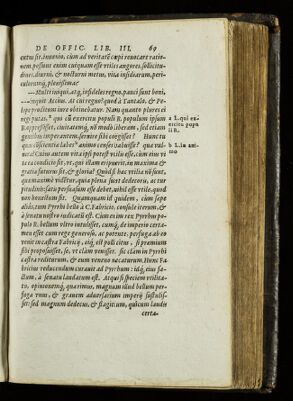 DE OFFIC. LIB. III. 69
centur sit. Antonio, cum ad veritatẽ cœpi revocare ratio-
nem, possunt enim cuiquam esse vtiles angores, sollicitu-
dines, diurni, & nocturni metus, vita insidiarum, peri-
culorumq́; plenissima?
---Multi iniqui, atq; infideles regno, pauci sunt boni,
---inquit Accius. At cui regno? quod à Tantalo, & Pe-
lope proditum iure obtinebatur. Nam quanto plures ei
regi putas, a qui cũ exercitu populi R. populum ipsum
R. oppressisset, civitatemq́; nõ modò liberam, sed etiam
gentibus imperantem, servire sibi coegisset? Hunc tu
quas conscientiæ labes b animo censes habuisse? quæ vul-
nera? Cuius autem vita ipsi potest vtilis esse, cùm eius vi
tæ ea conditio sit, vt, qui illam eripuerit, in maxima &
gratia futurus sit, & gloria? Quòd si hæc vtilia nõ sunt,
quæ maximè vidẽtur, quia plena sunt dedecoris, ac tur
pitudinis: satis persuasum esse debet, nihil esse vtile, quod
non honestum sit. Quamquam id quidem, cùm sæpe
aliàs, tum Pyrrhi bello à C. Fabricio, consule iterum, &
à senatu nostro iudicatũ est. Cùm enim rex Pyrrhus po-
pulo R. bellum vltro intulisset, cumq́; de imperio certa-
men esset cum rege generoso, ac potente: perfuga ab eo
venit in castra Fabricij, eiq́; est pollicitus, si præmium
sibi proposuisset, se, vt clàm venisset, sic clàm in Pyrrhi
castra rediturum, & eum veneno necaturum. Hunc Fa
bricius reducendum curauit ad Pyrrhum: idq́; eius fa-
ctum, à senatu laudatum est. Atqui si speciem vtilita-
tis, opinionemq́; quærimus, magnum illud bellum per-
fuga vnus, & grauem aduersarium imperij sustulis-
set: sed magnum dedecus, & flagitium, quicum laudis
certa-
a L. qui ex-
ercitu popu
li R.
b L. in ani-
mo